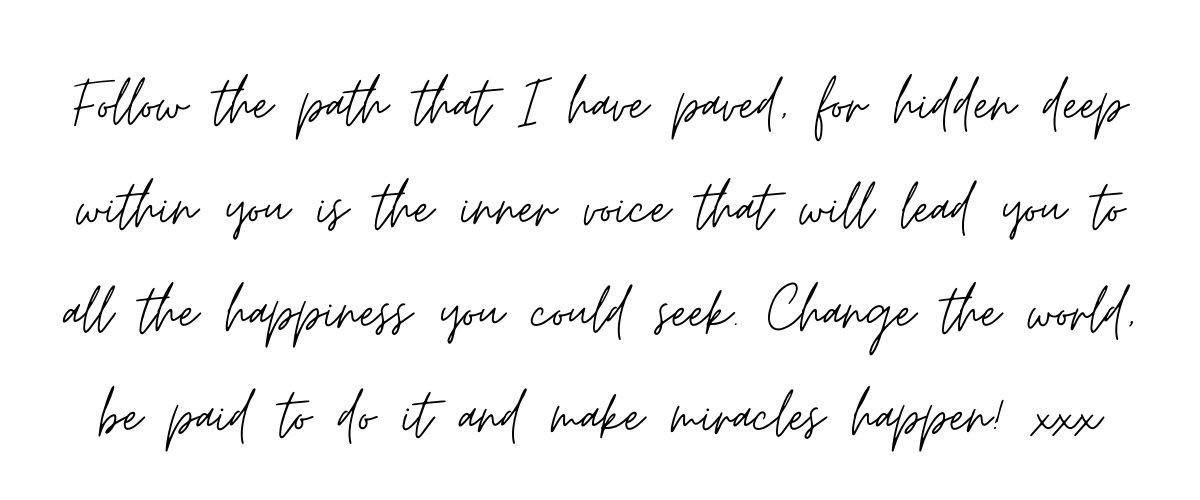 Follow the path that I have paved, for hidden deep
within you is the inner voice that will lead you to
all the happiness you could seek. Change the world,
be paid to do it and make miracles happen! xxx